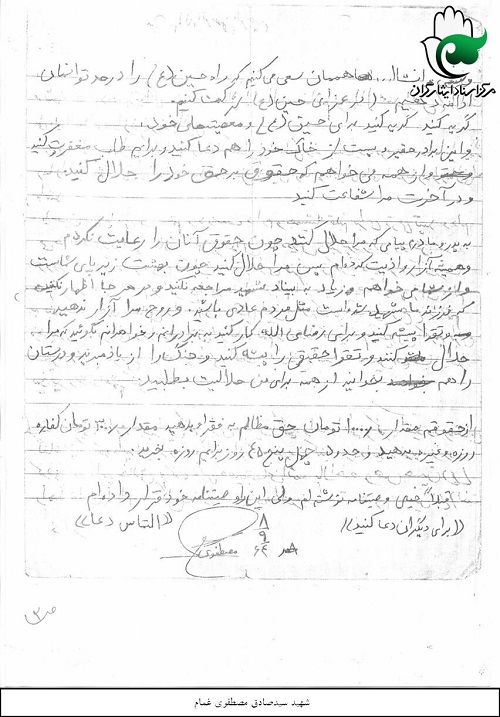 مرکز اسناد ایثارگران
وصیتی انشاا... همان سعی می کنیم که راه حسین (ع) را در حد توانمان
ادامه می دهیم. در عزای حسین (ع) شرکت کنیم.
گریه کنید گریه کنید برای حسین (ع) و معصیتهای خود.
و این برادر حقیر و پست از خاک خود را هم دعا کنید و برایم طلب مغفرت کنید
و از همه می خواهیم که حقوق بر حق خود را حلال کنید.
و در آخرت مرا شفاعت کنید
به پدر و مادرم پیامی که مرا حلال کنند چون حقوق آنان را رعایت نکردم
و همیشه آزار و اذیت کرده ام پس مرا حلال کنید چون بهشت زیر پای شماست
و از شما می خواهم زیاد به بنیاد شهید مراجعه نکنید و در هر جا اظهار نکنید
که فرزند ما شهید شده است مثل مردم عادی باشید. و روح مرا آزار ندهید.
تقوا پیشه کنید و برای رضای الله کار کنید به برادرانم و خواهرانم بگوئید که مرا
حلال کنند و تقوا حقیقی را پیشه کنید و جنگ را از یاد مبرید و درستان
را هم بخوانید از همه برای من حلالیت بطلبید.
از حقوقم مقدار ۱۰۰۰ تومان حق مظالم به فقرا بدهید مقدار ۳۰۰ تومان کفاره
روزه و غیره بدهید و حدود چهل پنج ۴۵ روز برایم روزه بخرید.
قبلاً خیلی وصیتنامه نوشته ام ولی این را وصیتنامه خود قرار داده ام
((برای دیگران دعا کنید)) ((التماس دعا))
۸
۹
۶۲
مصطفوی
ص ۳
شهید سیدصادق مصطفوی غسام